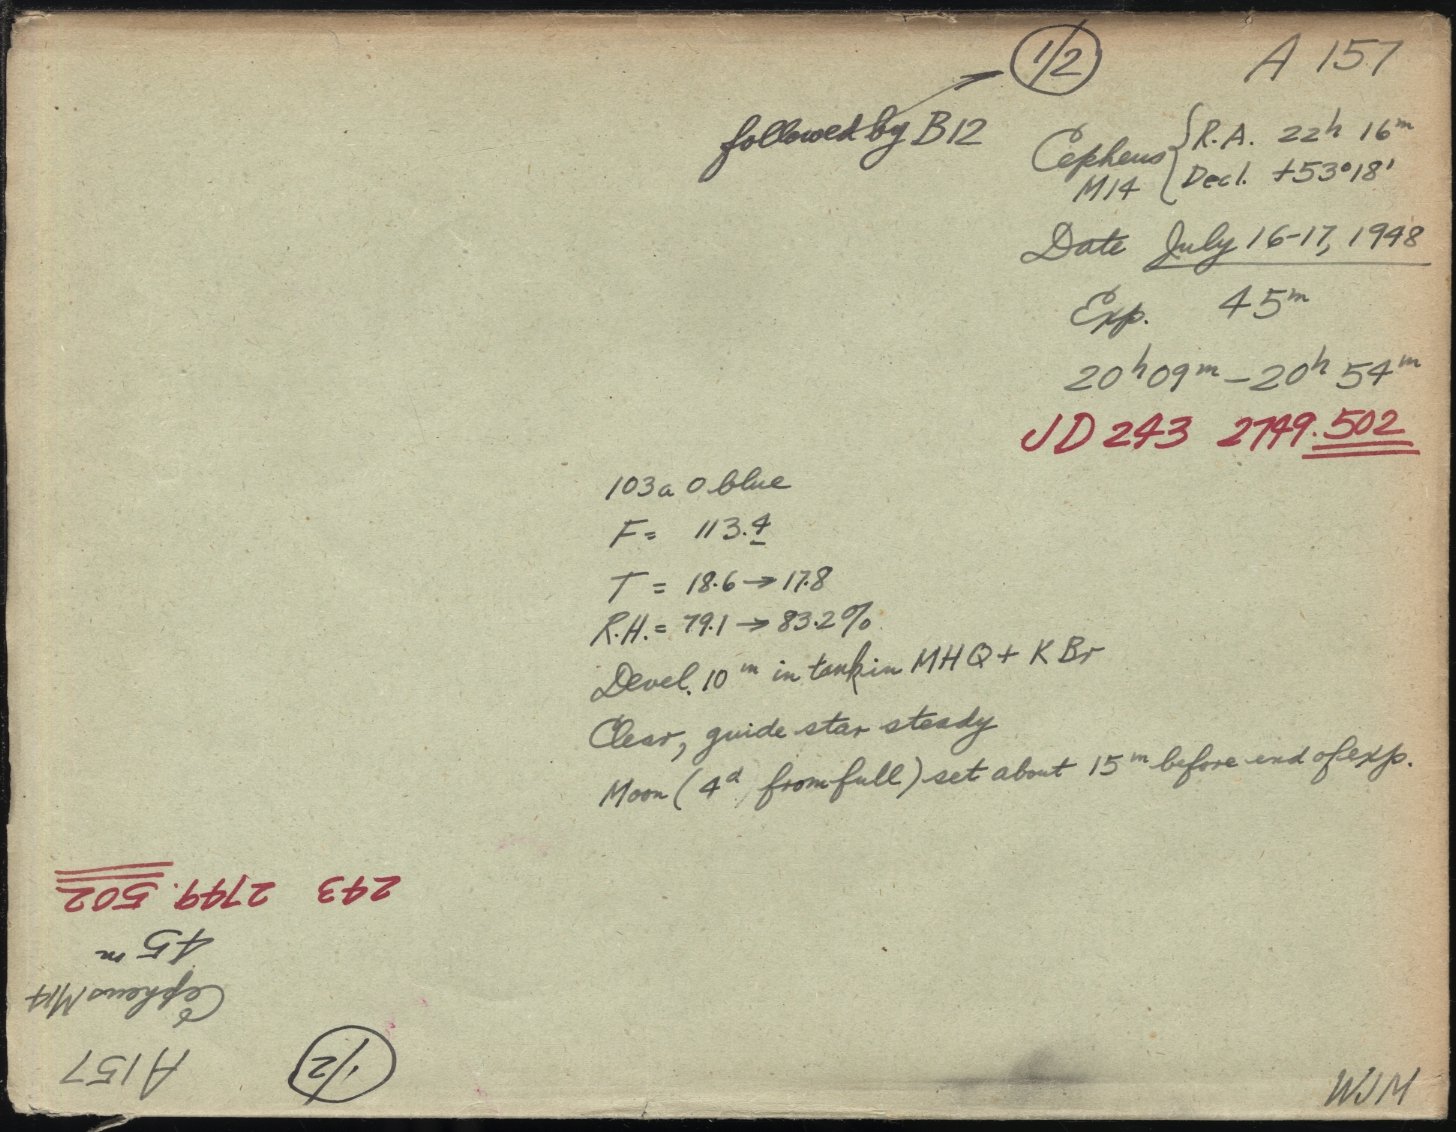 1/2
A 157
followed by B12
Cepheus
M14
R.A. 22h 16m
Decl. +53°18'
Date July 16-17, 1948
Exp. 45m
20h09m – 20h 54m
JD 243 2749.502
103a O blue
F = 113.4
T = 18.6 → 17.8
R.H. = 79.1 → 83.2%
Devel. 10m in tank in MHQ + KBr
Clear, guide star steady
Moon (4d from full) set about 15m before end of exp.
243 2749.502
45m
Cepheus M14
A157
1/2
WJM